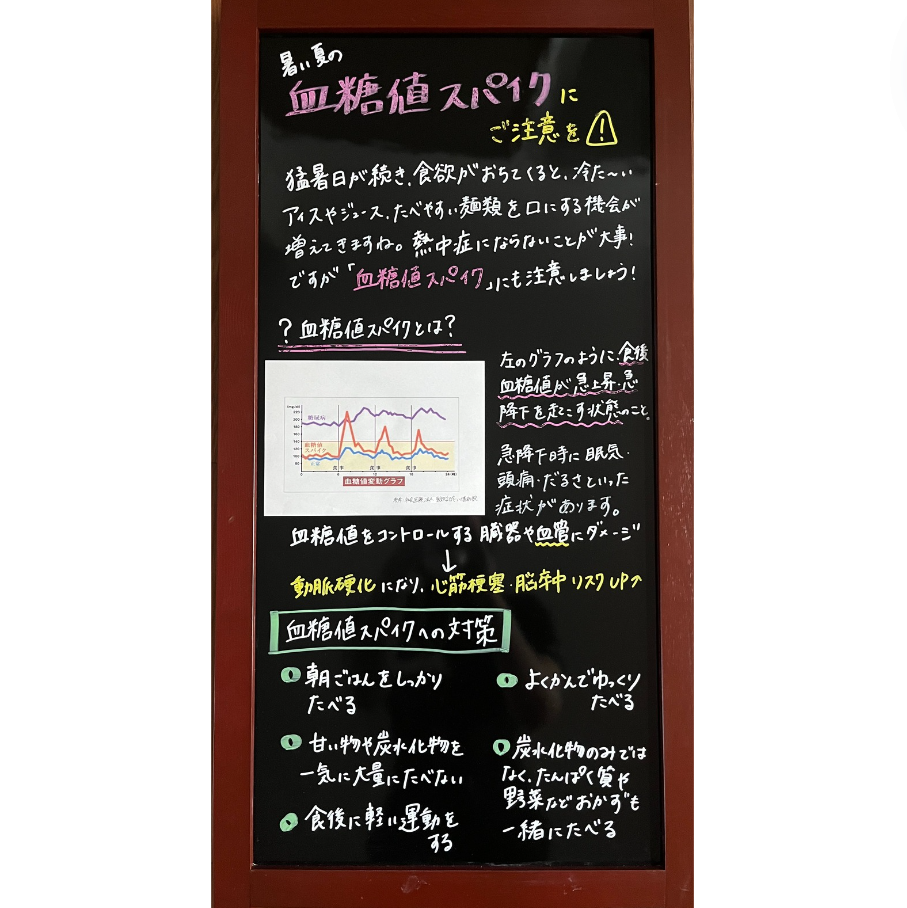 暑い夏の
血糖値スパイクに
ご注意を
猛暑日が続き、食欲がおちてくると、冷た〜い
アイスやジュース、たべやすい麺類を口にする機会が
増えてきますね。熱中症にならないことが大事!
ですが「血糖値スパイク」にも注意しましょう!
?血糖値スパイクとは?
左のグラフのように、食後
血糖値が急上昇・急
降下を起こす状態のこと。
急降下時に眠気・
頭痛・だるさといった
症状があります。
糖尿病
血糖値
スパイク
正常
食事
食事
食事
血糖値変動グラフ
血糖値をコントロールする臓器や血管にダメージ
↓
動脈硬化になり、心筋梗塞・脳卒中リスクUP↑
血糖値スパイクへの対策
朝ごはんをしっかり
たべる
甘い物や炭水化物を
一気に大量にたべない
食後に軽い運動を
する
よくかんでゆっくり
たべる
炭水化物のみでは
なく、たんぱく質や
野菜などおかずも
一緒にたべる